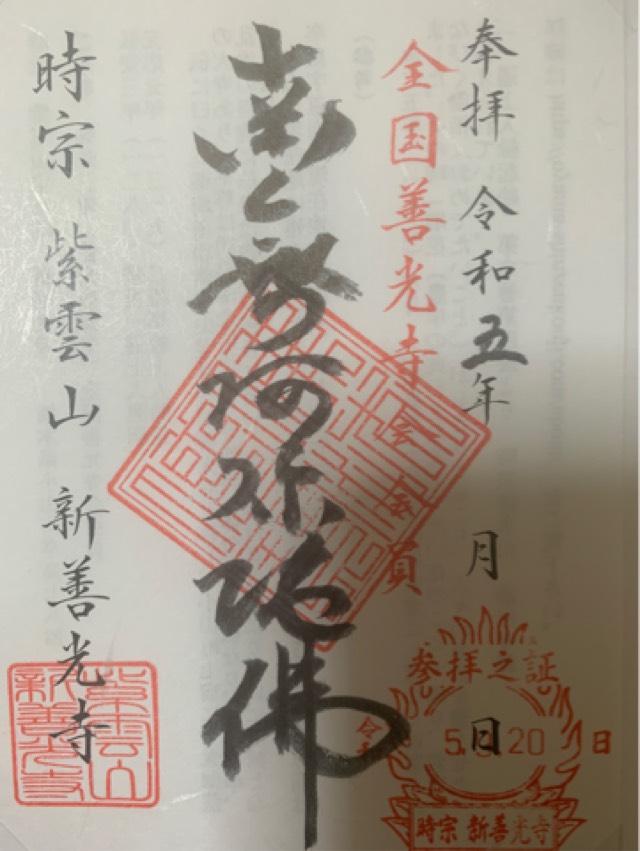 奉拝 令和五年 月 日
全国善光寺会会員
南無阿弥陀佛
時宗 紫雲山 新善光寺
参拝之証
日
時宗 新善光寺
紫雲山
新善光寺